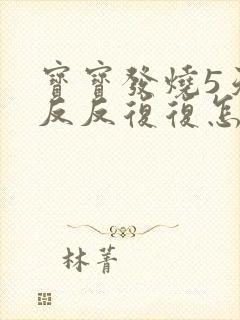 寶寶發燒5天
反反復復怎
林菁